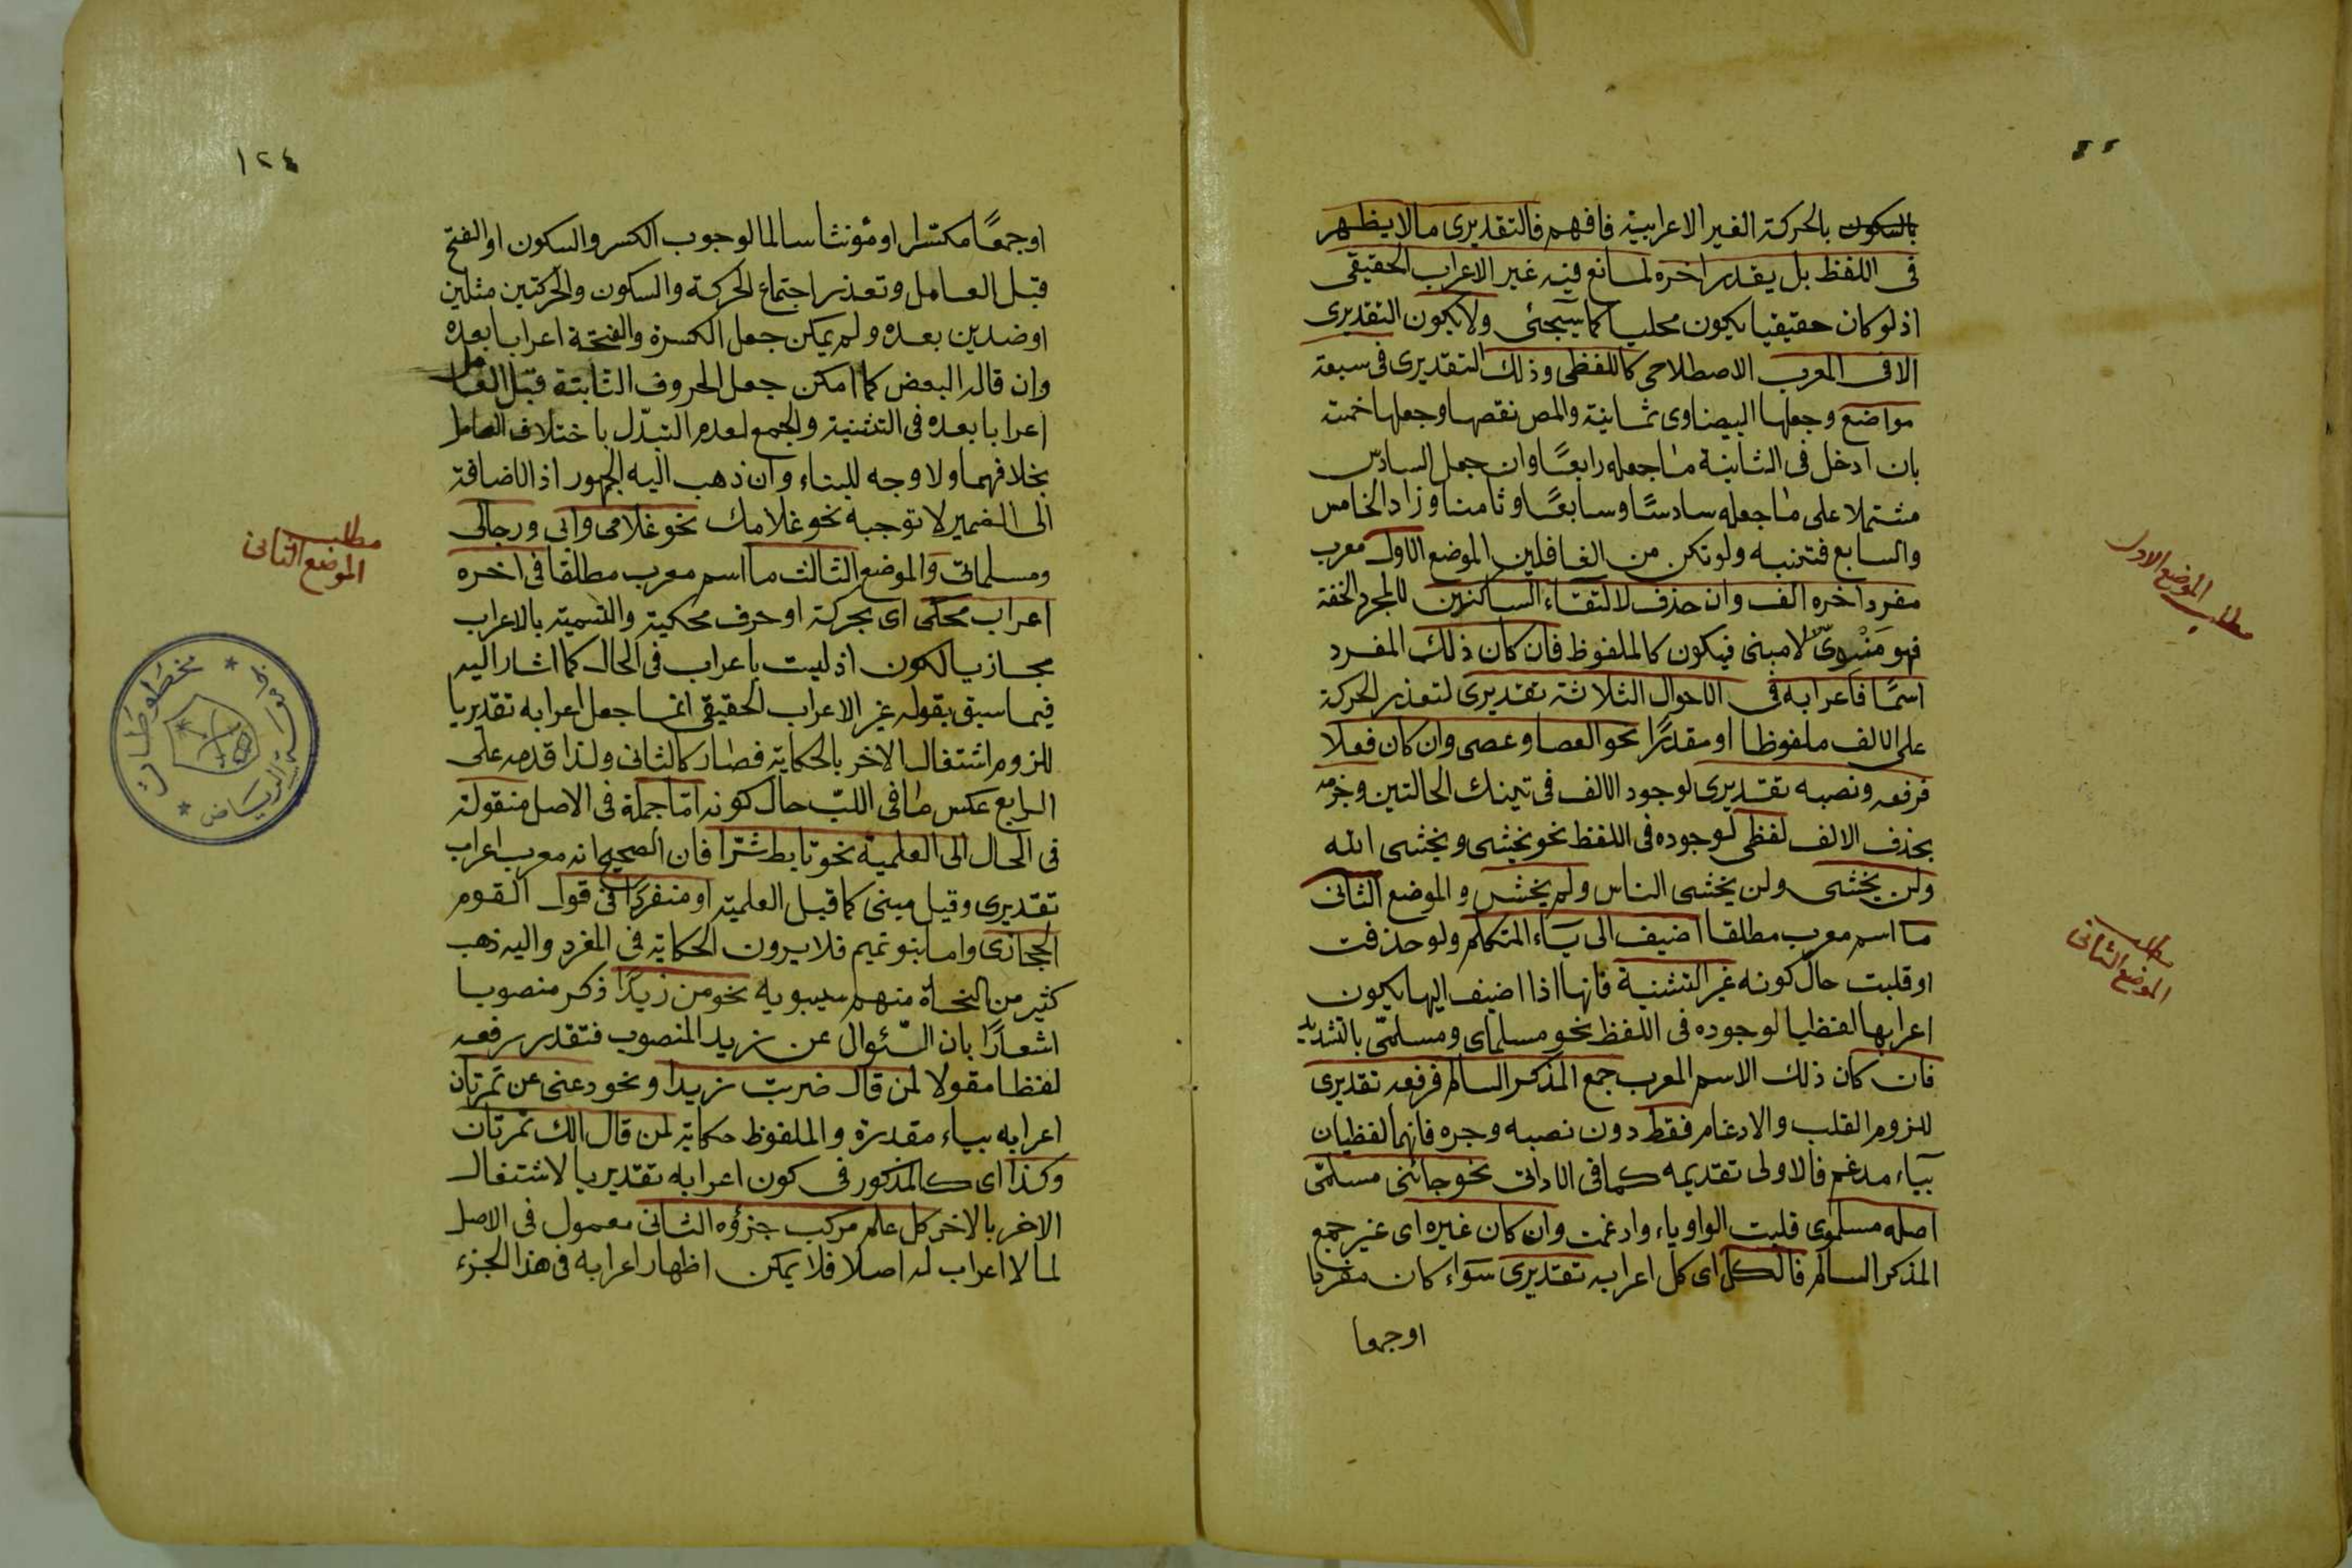 بالسكون بالحركة الغير الاعرابية فافهم فالتقديرى مالا يظهر
فى اللفظ بل يقدر اخره لمانع فيه غير الاعراب الحقيقى
اذ لو كان حقيقيا يكون محليا كما سيجئى ولا يكون التقديرى
الا فى المعرب الاصطلاحى كاللفظى وذلك التقديرى فى سبعة
مواضع وجعلها البيضاوى ثمانية والمص نقصها وجعلها خمته
بان ادخل فى الثانية ما جعله رابعًا وان جعل السادس
مشتملا على ما جعله سادسًا وسابعًا وثامنا وزاد الخامس
والسابع فتنبه ولا تكن من الغافلين الموضع الاول معرب
مفرد اخره الف وان حذف لالتقاء الساكنين للمجرد الخفة
فهو مَنْوىٌّ لا مبنى فيكون كالملفوظ فان كان ذلك المفرد
اسمًا فاعرابه فى الاحوال الثلاثة تقديرى لتعذر الحركة
على الالف ملفوظا او مقدرًا نحو العصا وعصى وان كان فعلا
فرفعه ونصبه تقديرى لوجود الالف فى تينك الحالتين وجزمه
بحذف الالف لفظى لوجوده فى اللفظ نحو يخشى ويخشى الله
ولن يخشى ولن يخشى الناس ولم يخش والموضع الثانى
ما اسم معرب مطلقا اضيف الى ياء المتكلم ولو حذفت
او قلبت حال كونه غير التثنية فانها اذا اضيف اليها يكون
اعرابها لفظيا لوجوده فى اللفظ نحو مسلماى ومسلمىّ بالتشديد
فان كان ذلك الاسم المعرب جمع المذكر السالم فرفعه تقديرى
للزوم القلب والادغام فقط دون نصبه وجره فانهما لفظيان
بياء مدغم فالاولى تقديمه كما فى الاداتى نحو جائنى مسلمّى
اصله مسلموى قلبت الواو ياء وادغمت وان كان غيره اى غير جمع
المذكر السالم فالكل اى كل اعرابه تقديرى سواء كان مفردا
او جمعا
مطلب الموضع الاول
مطلب
الموضع الثانى
١٢٤
او جمعًا مكسّرا او مؤنثا سالما لوجوب الكسر والسكون او الفتح
قبل العامل وتعذر اجتماع الحركة والسكون والحركتين مثلين
او ضدين بعده ولم يمكن جعل الكسرة والفتحة اعرابا بعده
وان قاله البعض كما امكن جعل الحروف الثابتة قبل العامل
اعرابا بعده فى التثنية والجمع لعدم التبدّل باختلاف العامل
بخلافهما ولا وجه للبناء وان ذهب اليه الجمهور اذ الاضافة
الى الضمير لا توجبه نحو غلامك نحو غلامى وابى ورجالى
ومسلماتى والموضع الثالث ما اسم معرب مطلقا فى اخره
اعراب محكى اى بحركة او حرف محكية والتسمية بالاعراب
مجاز بالكون اذ ليست باعراب فى الحال كما اشار اليه
فيما سبق بقوله غير الاعراب الحقيقى انما جعل اعرابه تقديريا
للزوم اشتغال الاخر بالحكاية فصار كالثانى ولذا قدمه على
الرابع عكس ما فى اللبّ حال كونه امّا جملة فى الاصل منقولة
فى الحال الى العلمية نحو تابط شرّا فان الصحيح انه معرب اعراب
تقديرى وقيل مبنى كما قبل العلمية او منفردًا فى قول القوم
الحجازى واما بنو تميم فلا يرون الحكاية فى المفرد واليه ذهب
كثير من النحاة منهم سيبويه نحو من زيدًا ذكر منصوبا
اشعارًا بان السّئوال عن زيد المنصوب فتقدر رفعه
لفظا مقولا لمن قال ضربت زيدا ونحو دعنى عن تمرتان
اعرابه بياء مقدرة والملفوظ حكاية لمن قال الك تمرتان
وكذا اى كالمذكور فى كون اعرابه تقديريا لاشتغال
الاخر بالاخر كل علم مركب جزؤه الثانى معمول فى الاصل
لما لا اعراب له اصلا فلا يمكن اظهار اعرابه فى هذا الجزء
مطلب
الموضع الثانى
مخطوطات
الرياض